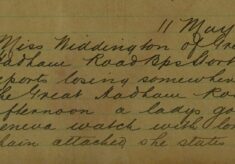 11 May
Miss Widdington of Gre
Hadham Road Bps Stort
eports losing somewhere
he Great Hadham Roa
fternoon a ladys go
eneva watch with lon
hain attached she states